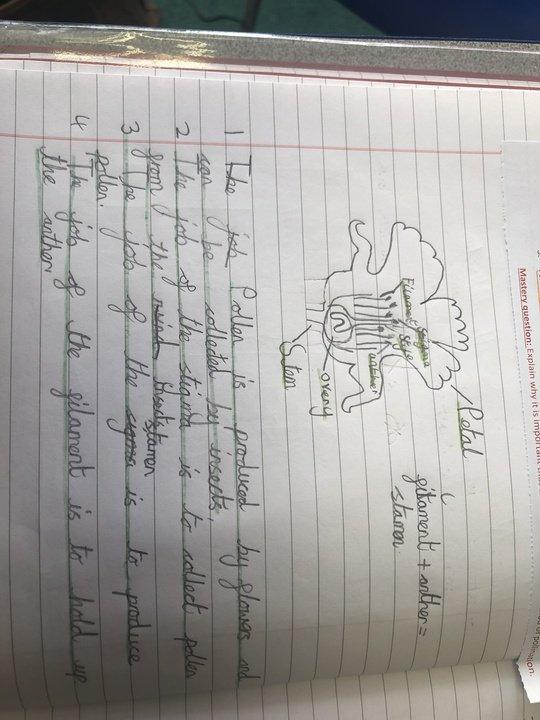 Mastery question: Explain why it is important that
Petal
filament + anther =
stamen.
Filament
Stigma
Style
anther
ovary
Stem
1 The job Pollen is produced by flowers and
can be collected by insects.
2 The job of the stigma is to collect pollen
from the insects
3 The job of the sigma stamen is to produce
pollen.
4 The job of the filament is to hold up
the anther